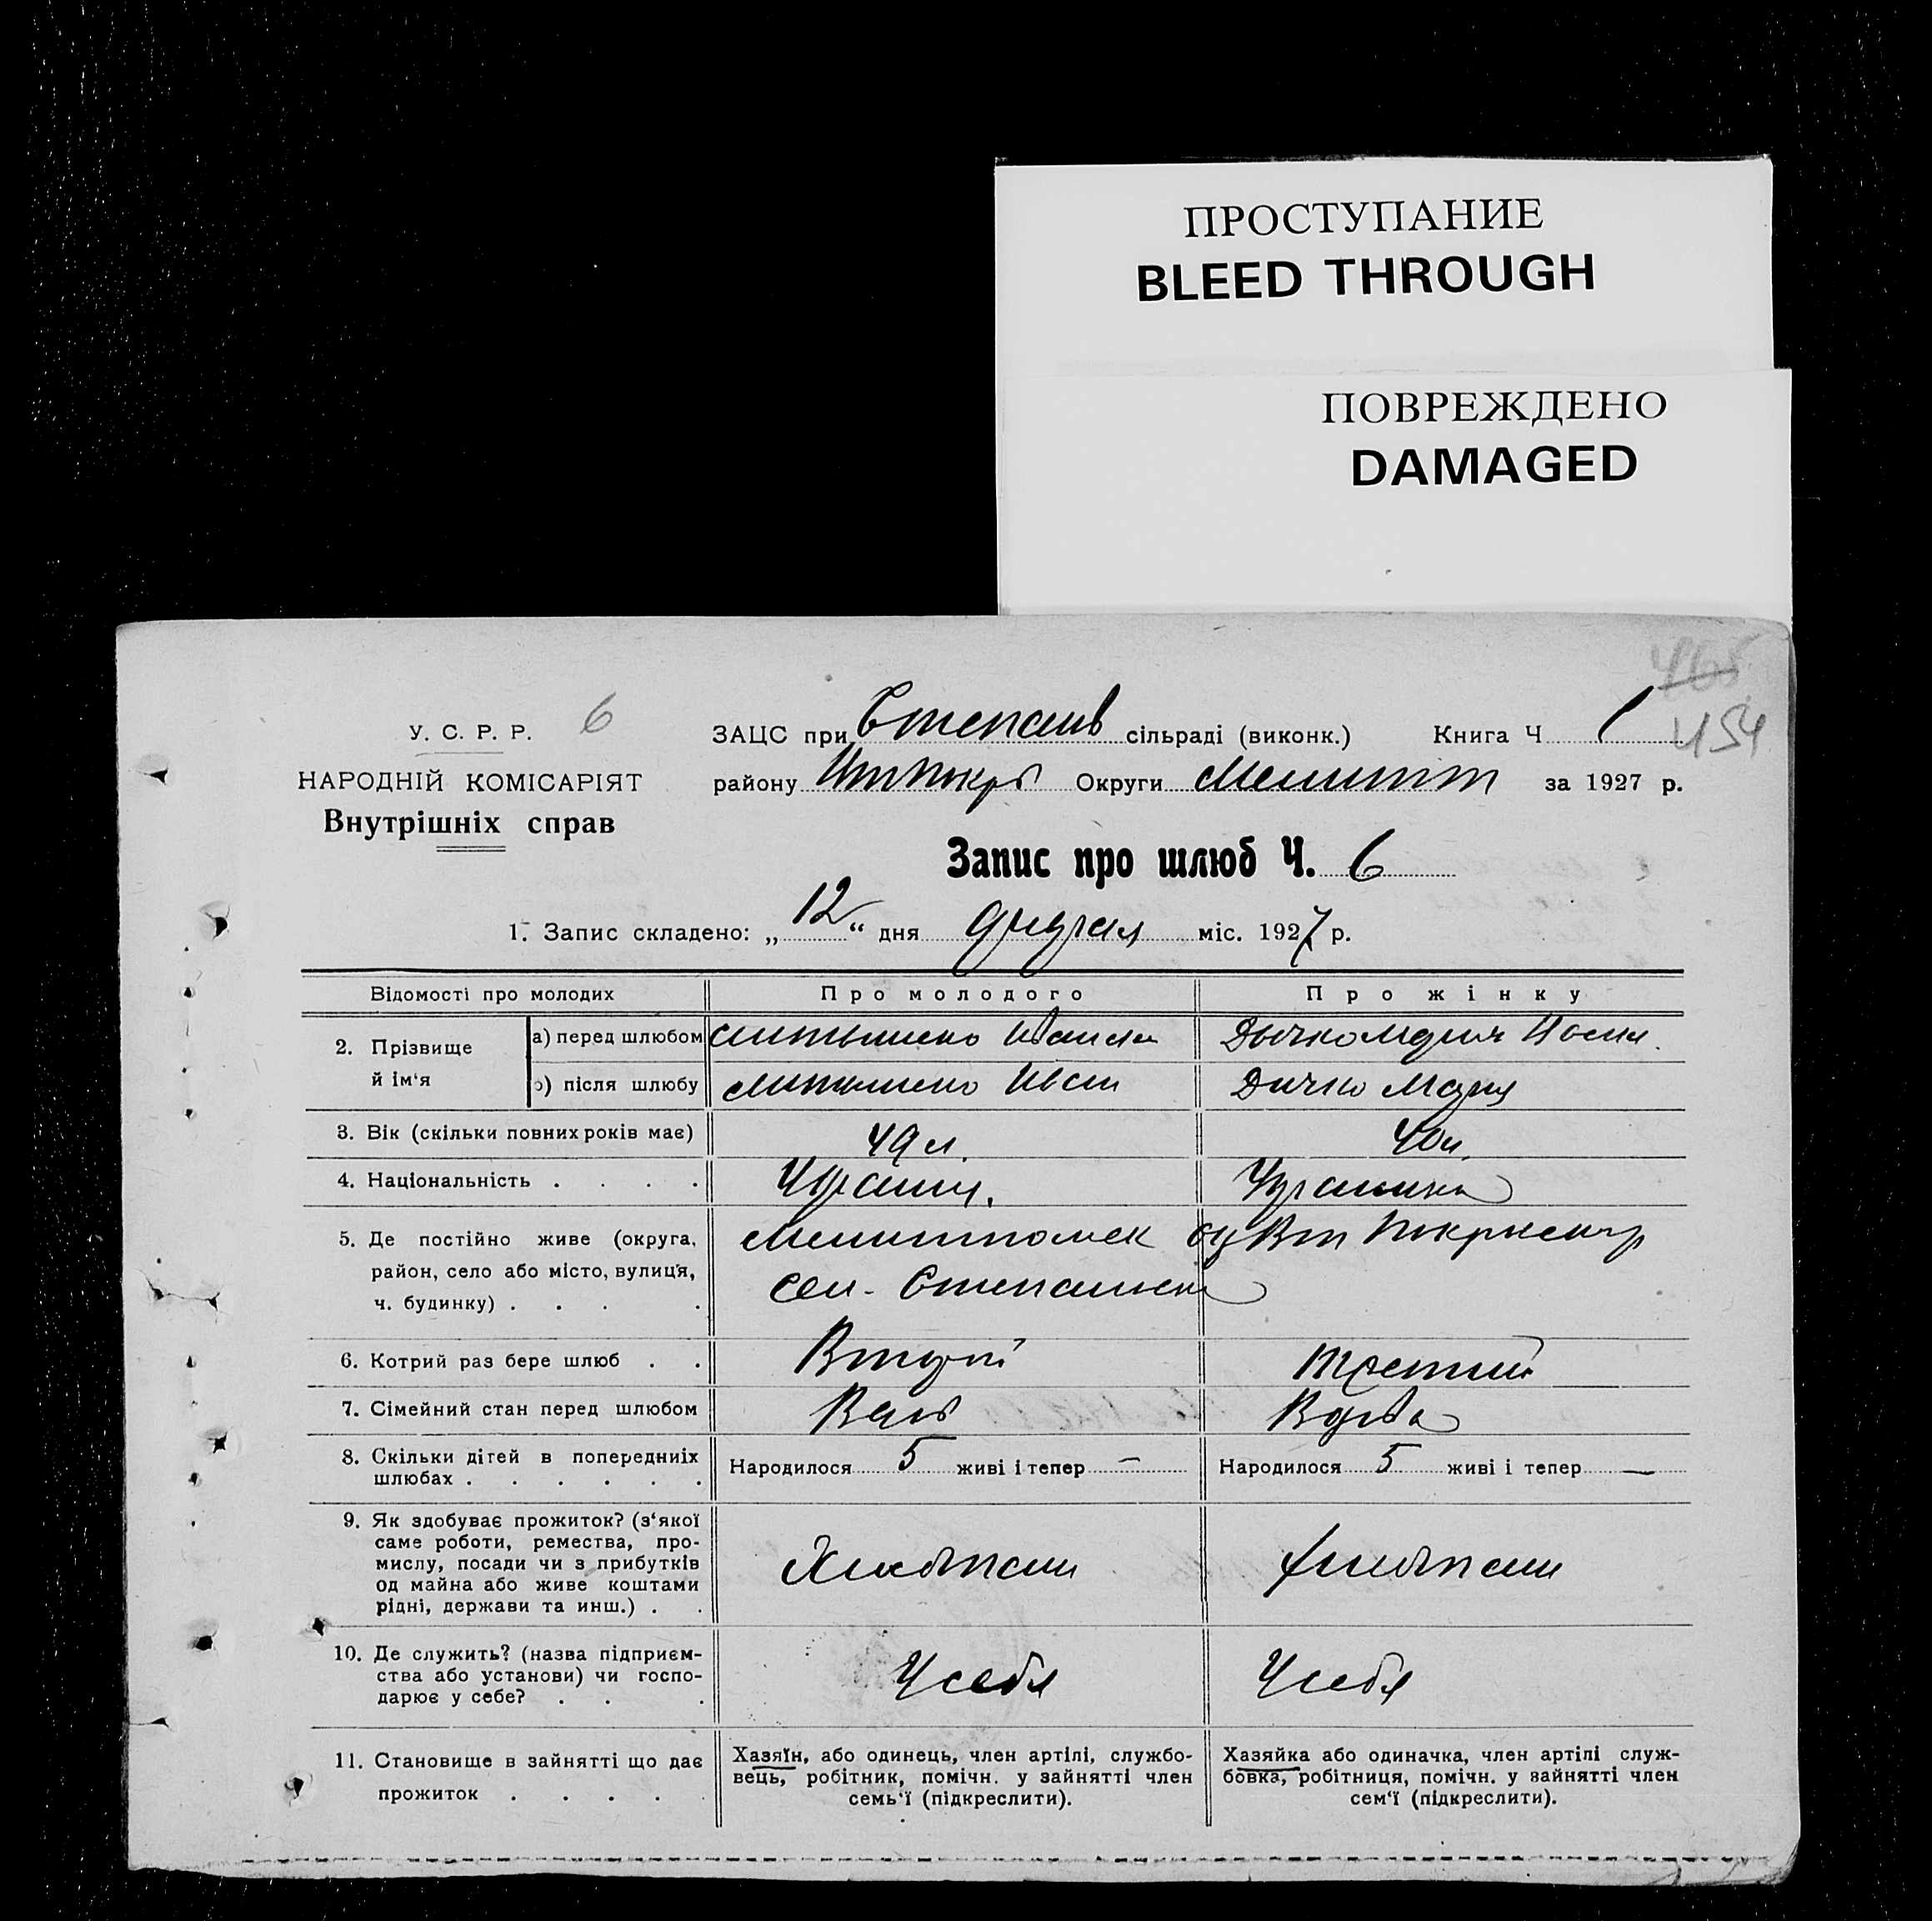 ПРОСТУПАНИЕ
BLEED THROUGH
ПОВРЕЖДЕНО
DAMAGED
465
454
У. С. Р. Р. 6
НАРОДНІЙ КОМІСАРІЯТ
Внутрішніх справ
ЗАЦС при Степанів сільраді (виконк.) Книга Ч 1
району Округи Мелитоп за 1927 р.
Запис про шлюб Ч. 6
1. Запис складено: „12“ дня міс. 1927 р.
Відомості про молодих Про молодого Про жінку
2. Прізвище й ім‘я
а) перед шлюбом Дычко Мария
б) після шлюбу Иван Дичко Мария
3. Вік (скільки повних років має) 49 л. 40 л.
4. Національність . . . .
5. Де постійно живе (округа,
район, село або місто, вулиця,
ч. будинку) . . . .
сел.
6. Котрий раз бере шлюб . . Второй Третий
7. Сімейний стан перед шлюбом Вдова
8. Скільки дітей в попередниіх
шлюбах . . . . . .
Народилося 5 живі і тепер — Народилося 5 живі і тепер —
9. Як здобуває прожиток? (з‘якої
саме роботи, ремества, про-
мислу, посади чи з прибутків
од майна або живе коштами
рідні, держави та инш.) . .
Хлебопаш Хлебопаш
10. Де служить? (назва підприєм-
ства або установи) чи госпо-
дарює у себе? . . .
У себя У себя
11. Становище в зайнятті що дає
прожиток . . . . .
Хазяїн, або одинець, член артілі, службо-
вець, робітник, помічн. у зайнятті член
семь‘ї (підкреслити).
Хазяйка або одиначка, член артілі служ-
бовка, робітниця, помічн. у зайнятті член
сем‘ї (підкреслити).